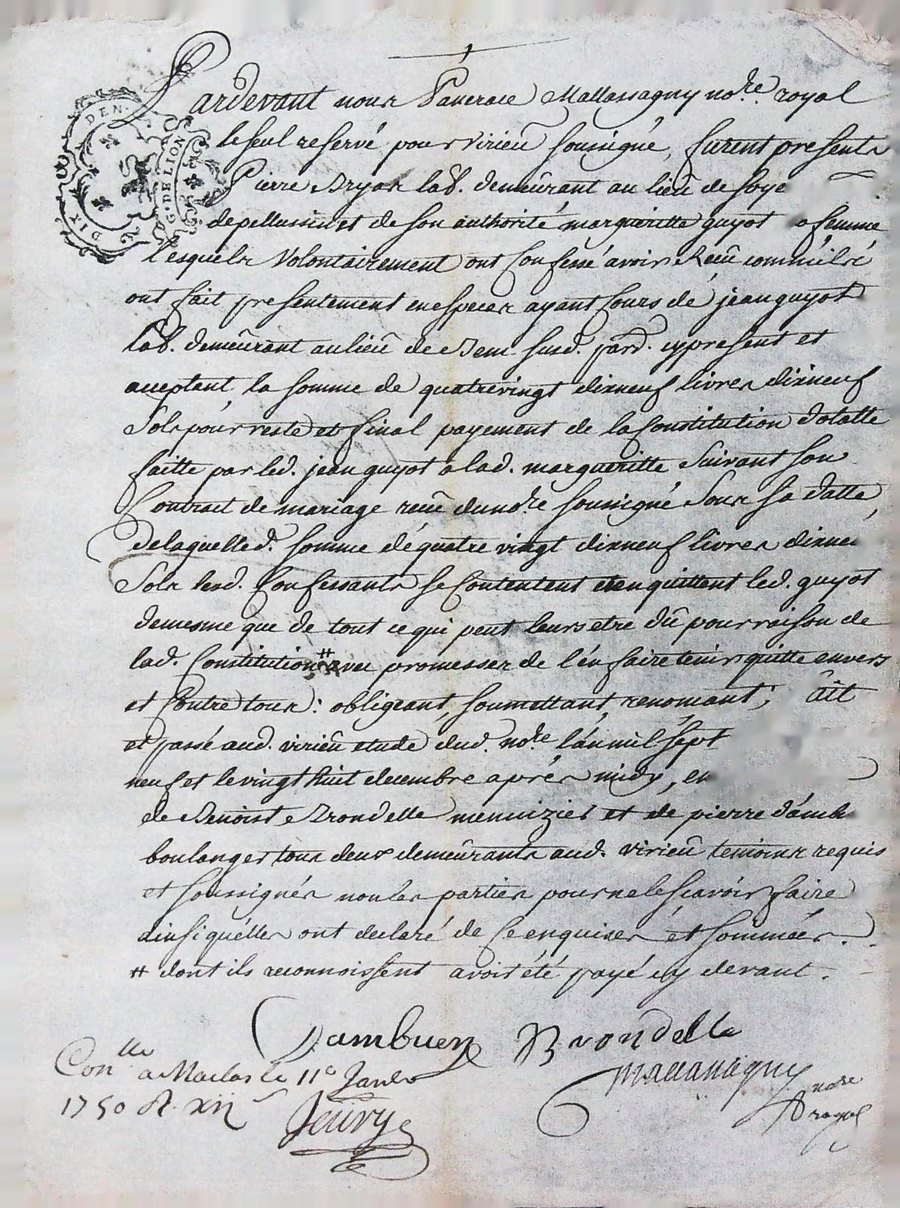 DIX DEN.
G. DE LION
Pardevant nous Pancrace Mallassagny no.re royal
le seul reservé pour virieu soussigné, furent presents
Pierre lab. demeurant au lieu de
de pellussin et de son authorité margueritte guyot femme
lesquels Volontairement ont Confessé avoir Receu comme
ont fait presentement en especes ayant Cours de jean guyot
lab. demeurant au lieu de susd. pard. cy present et
acceptant la somme de quatrevingt dixneuf livres dixneuf
Sols pour reste et final payement de la Constitution dotalle
faitte par led. jean guyot a lad. margueritte Suivant son
Contrait de mariage receu du no.re soussigné Sous sa datte
de laquelle d. somme de quatre vingt dixneuf livres
Sols lesd. Confessants se Contentent et en quittent led. guyot
de mesme que de tout ce qui peut leurs etre dû pour raison de
lad. Constitution # avec promesses de l'en faire tenir quitte envers
et Contre tous : obligeant, soumettant, renonçant ;
et passé aud. virieu etude dud. no.re l'an mil sept
neuf et le vingt huit decembre après midy, en
de Benoist Brondelle menuizier et de pierre
boulanger tous deux demeurants aud. virieu temoins requis
et soussignés non les parties pour ne le scavoir faire
ainsi qu'elles ont declaré de ce enquises et sommées.
# dont ils reconnoissent avoir été payé cy devant.
Dambuen Brondelle
Con.lle a Maclas le 11e Janv. Mallassagny
1750 R. xii s no.re
Jeury royal